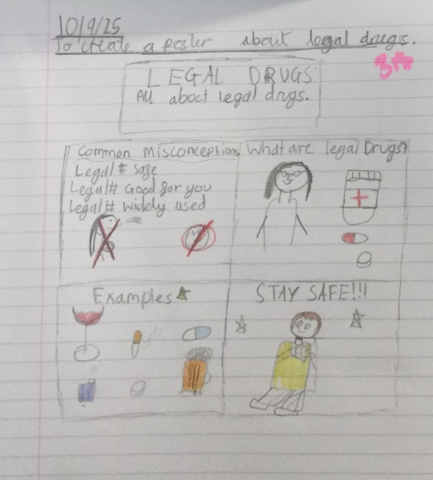 10/9/25
To create a poster about legal drugs.
LEGAL DRUGS
All about legal drugs.
Common misconceptions
Legal ≠ safe
Legal ≠ Good for you
Legal ≠ widely used
What are legal Drugs?
Examples
STAY SAFE!!!